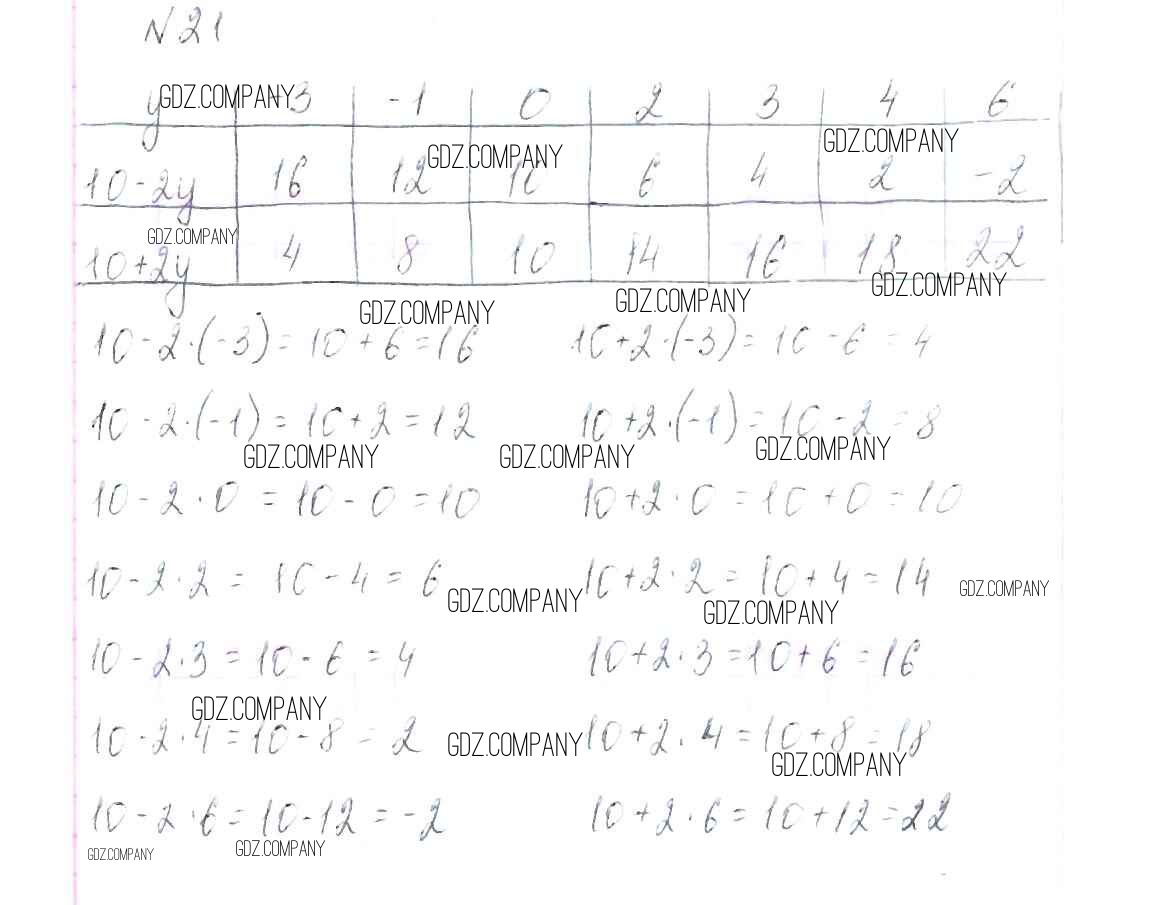 N 21
y GDZ.COMPANY -3 -1 0 2 3 4 6
GDZ.COMPANY GDZ.COMPANY
10-2y 16 12 10 6 4 2 -2
GDZ.COMPANY
10+2y 4 8 10 14 16 18 22
GDZ.COMPANY GDZ.COMPANY GDZ.COMPANY
10-2·(-3)=10+6=16 10+2·(-3)=10-6=4
10-2·(-1)=10+2=12 10+2·(-1)=10-2=8
GDZ.COMPANY GDZ.COMPANY GDZ.COMPANY
10-2·0=10-0=10 10+2·0=10+0=10
10-2·2=10-4=6 10+2·2=10+4=14
GDZ.COMPANY GDZ.COMPANY GDZ.COMPANY
10-2·3=10-6=4 10+2·3=10+6=16
GDZ.COMPANY
10-2·4=10-8=2 GDZ.COMPANY 10+2·4=10+8=18
GDZ.COMPANY
10-2·6=10-12=-2 10+2·6=10+12=22
GDZ.COMPANY GDZ.COMPANY